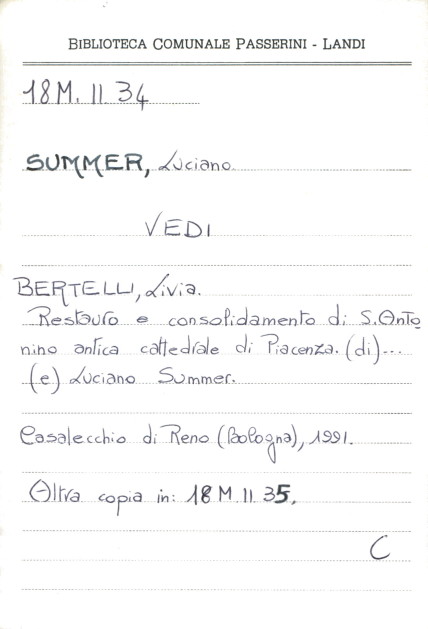 BIBLIOTECA COMUNALE PASSERINI - LANDI
18M. II. 34
SUMMER, Luciano.
VEDI
BERTELLI, Livia.
Restauro e consolidamento di S. Anto
nino antica cattedrale di Piacenza. (di)...
(e) Luciano Summer.
Casalecchio di Reno (Bologna), 1991.
Altra copia in: 18 M. II. 35.
C